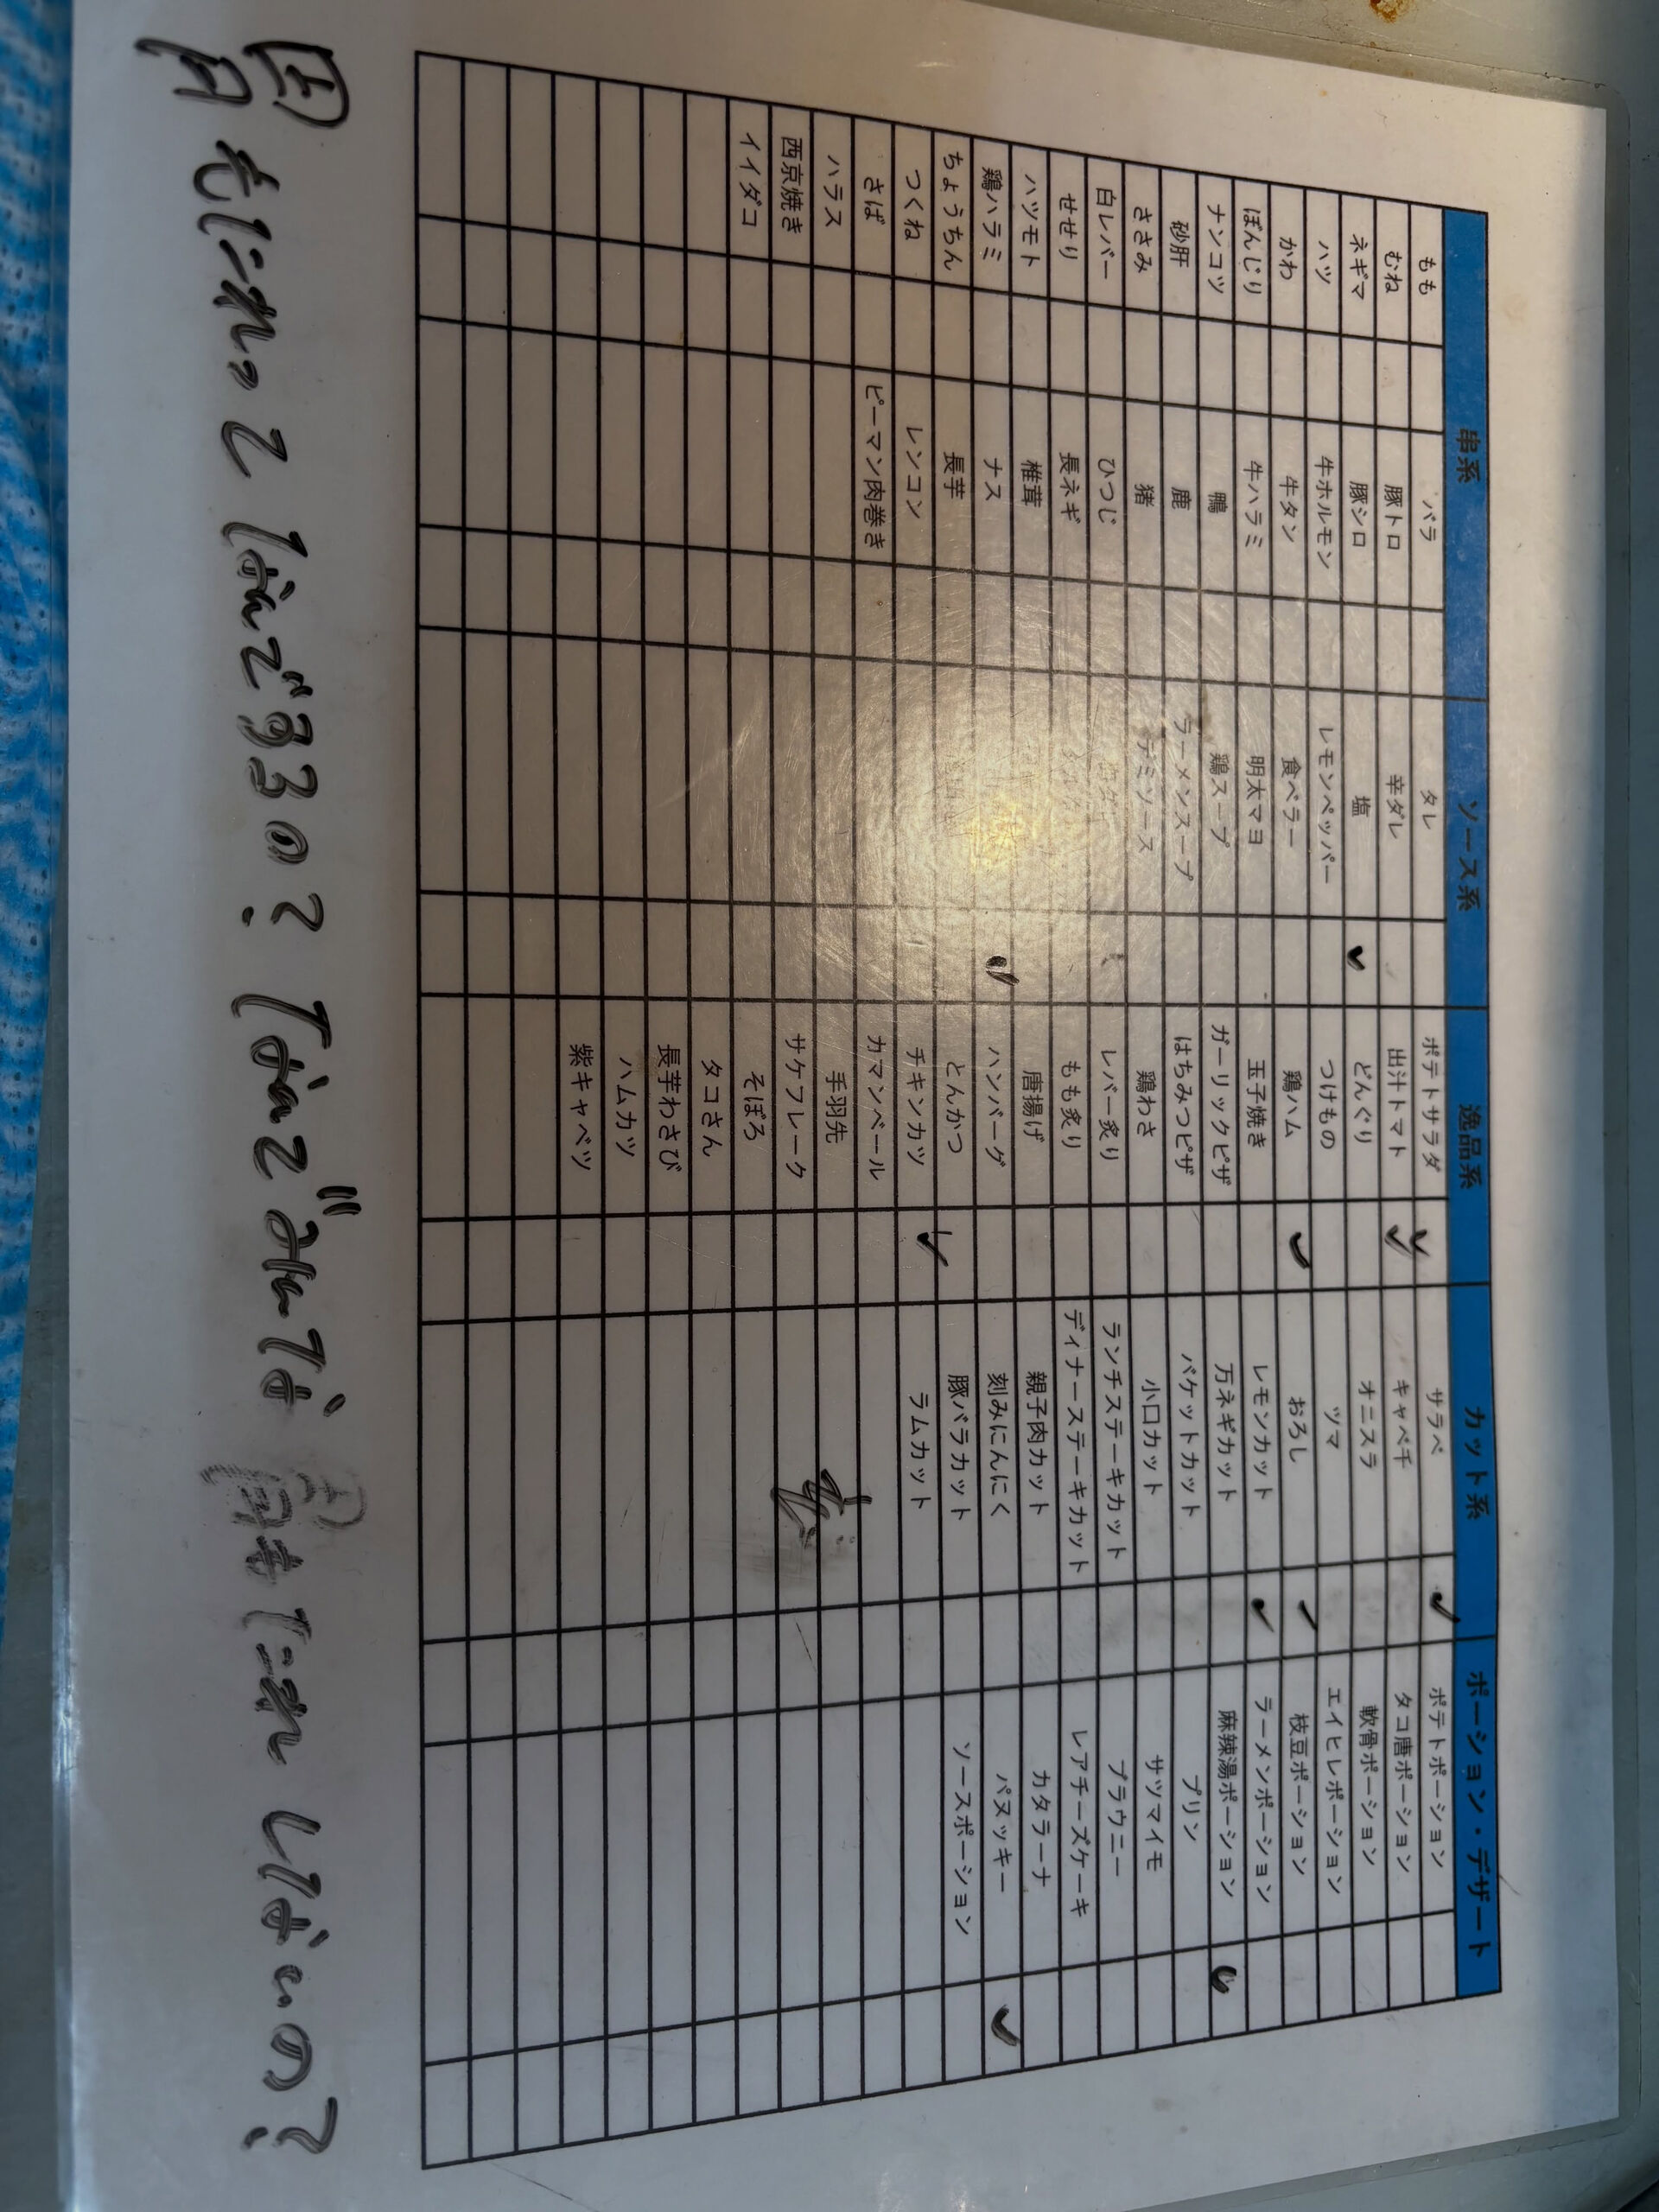 串系 ソース系 逸品系 カット系 ポーション・デザート
もも バラ タレ ポテトサラダ サラベ ポテトポーション
むね 豚トロ 辛ダレ 出汁トマト キャベ千 タコ唐ポーション
ネギマ 豚シロ 塩 どんぐり オニスラ 軟骨ポーション
ハツ 牛ホルモン レモンペッパー つけもの ツマ エイヒレポーション
かわ 牛タン 食べラー 鶏ハム おろし 枝豆ポーション
ぼんじり 牛ハラミ 明太マヨ 玉子焼き レモンカット ラーメンポーション
ナンコツ 鴨 鶏スープ ガーリックピザ 万ネギカット 麻辣湯ポーション
砂肝 鹿 ラーメンスープ はちみつピザ バケットカット プリン
ささみ 猪 デミソース 鶏わさ 小口カット サツマイモ
白レバー ひつじ レバー炙り ランチステーキカット ブラウニー
せせり 長ネギ もも炙り ディナーステーキカット レアチーズケーキ
ハツモト 椎茸 唐揚げ 親子肉カット カタラーナ
鶏ハラミ ナス ハンバーグ 刻みにんにく パヌッキー
ちょうちん 長芋 とんかつ 豚バラカット ソースポーション
つくね レンコン チキンカツ ラムカット
さば ピーマン肉巻き カマンベール
ハラス 手羽先
西京焼き サケフレーク
イイダコ そぼろ
タコさん
長芋わさび
ハムカツ
紫キャベツ
これって なんで の? なんでみんな これ しないの?